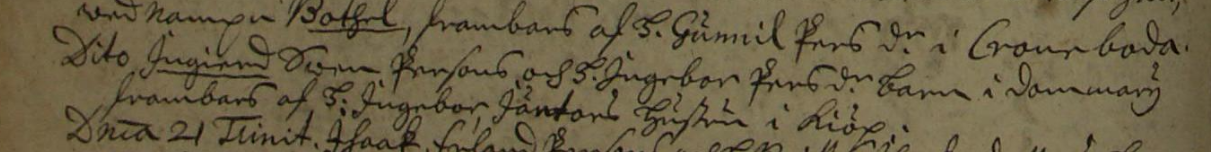 wed nampn Bothel, frambars af H. Gunnil Pers dr. i Croneboda.
Dito Ingierd Swen Persons och H. Ingebor Pers dr. barn i Dommary
frambars af H. Ingebor, Jäntors Hustru i Kiöp.
Dnica 21 Trinit. Isaak Erland Persons